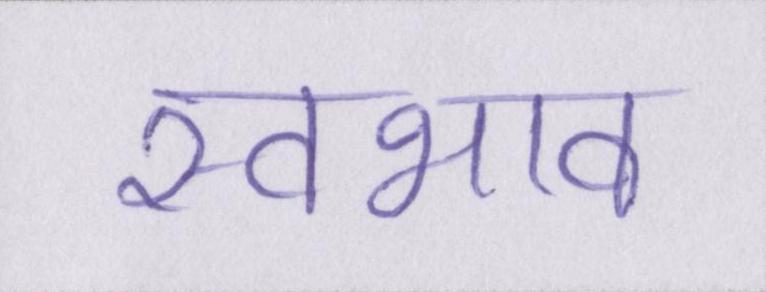 स्वभाव